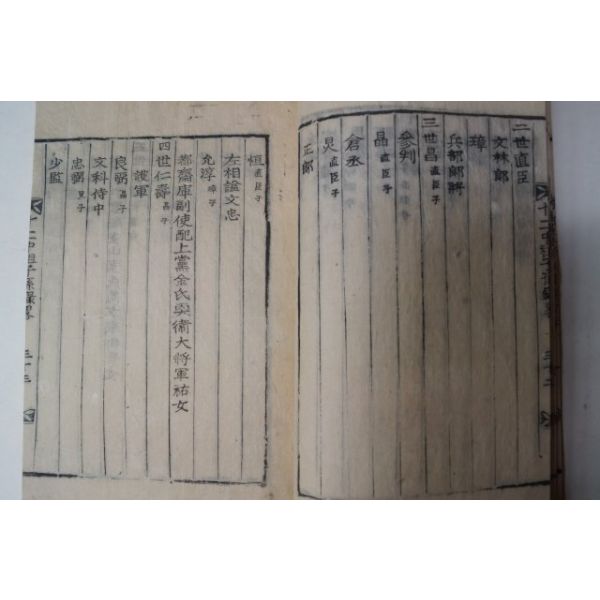 二世直臣
文林郎
璋
兵部郎將
三世昌直臣子
參判
晶直臣子
倉丞
炅直臣子
正郎
恒直臣子
左相謚文忠
允淳璋子
都齋庫副使配上黨金氏興衛大將軍祐女
四世仁壽昌子
護軍
良弼晶子
文科侍中
忠弼炅子
少監